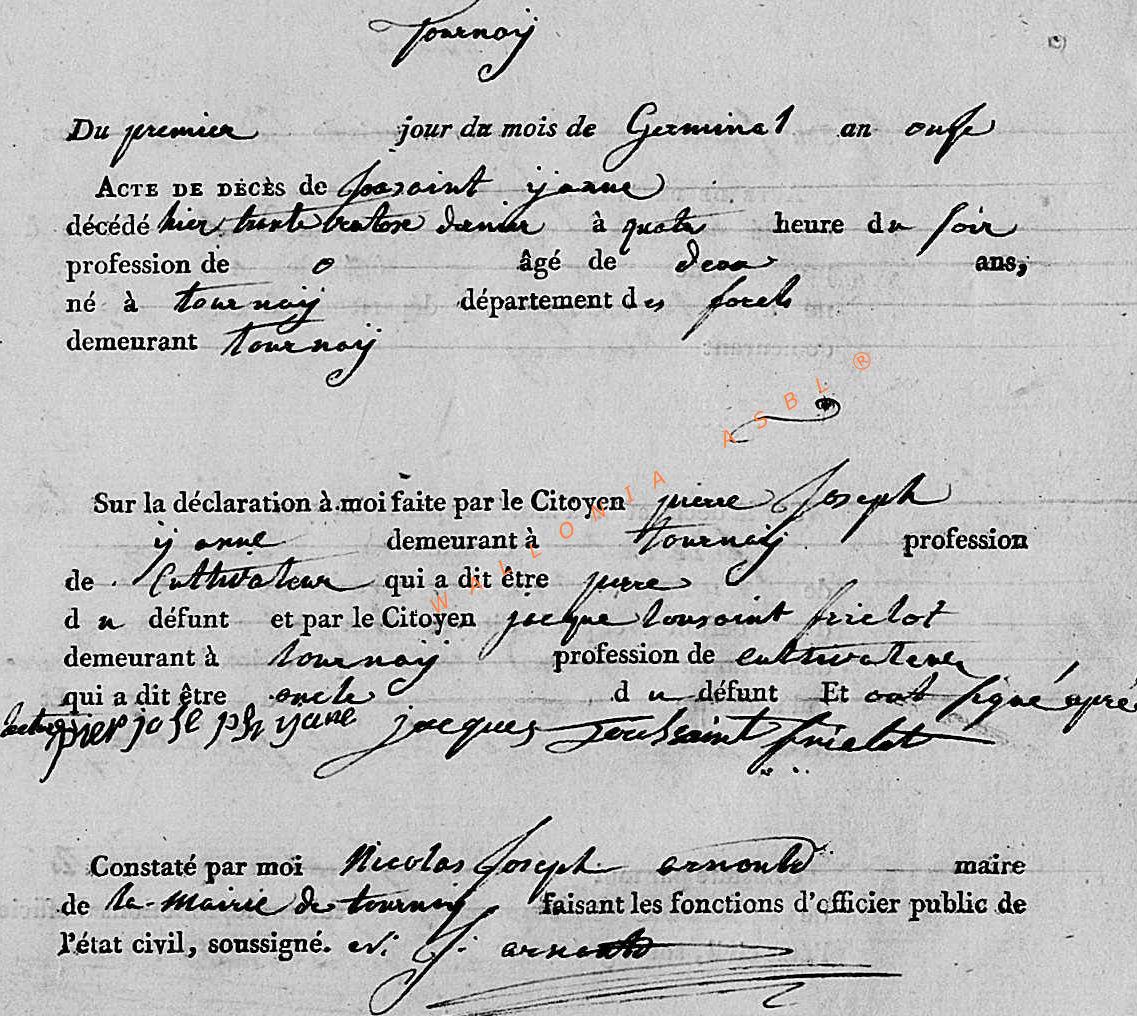 Tournaÿ
Du premier jour du mois de Germinal an onse
ACTE DE DÉCÈS de ÿanne
décédé hier trente ventose dernier à quatre heure du soir
profession de o âgé de deux ans,
né à tournaÿ département des forets
demeurant tournaÿ
Sur la déclaration à moi faite par le Citoyen pierre Joseph
ÿanne demeurant à tournaÿ profession
de Cultivateur qui a dit être pere
du défunt et par le Citoyen jacque tousaint frielot
demeurant à tournaÿ profession de cultivateur
qui a dit être oncle du défunt Et ont signé aprés
lecture pier joseph ÿane jacques Toussaint frielot
Constaté par moi Nicolas Joseph arnould maire
de la mairie de tournaÿ faisant les fonctions d'officier public de
l'état civil, soussigné. N. J. arnould
WALLONIA ASBL ®